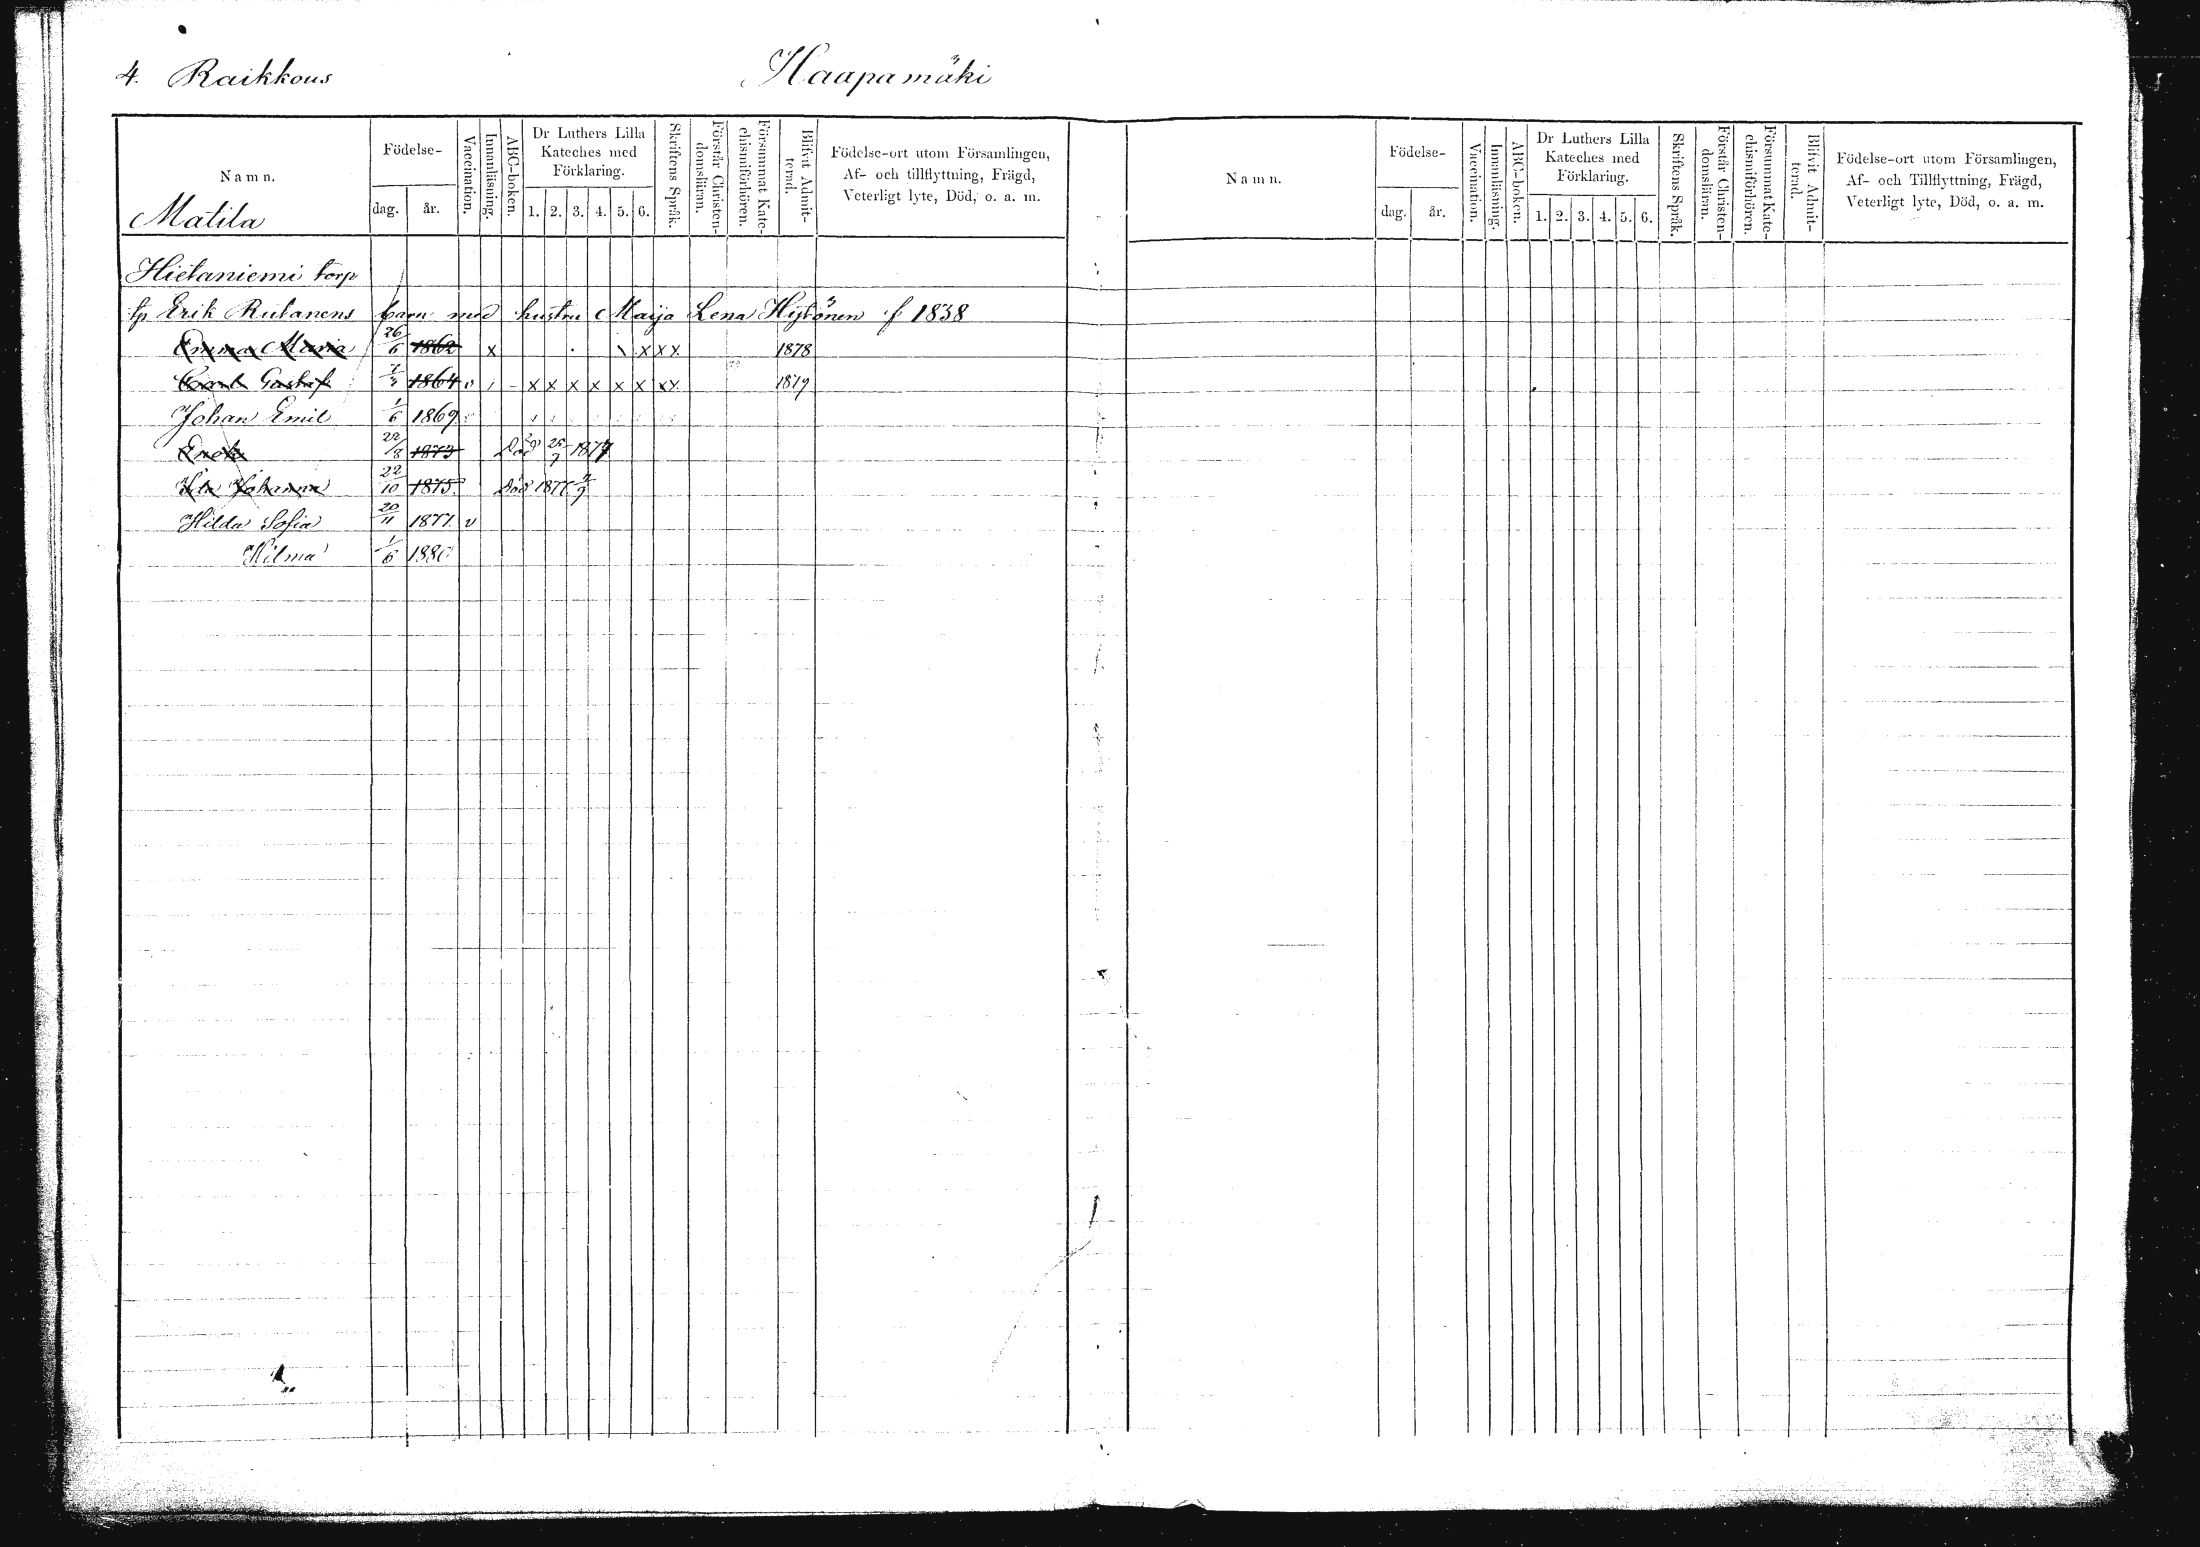 4. Raikkous
Haapamäki
Namn.
Födelse-
dag. år.
Vaccination.
Innanläsning.
ABC-boken.
Dr Luthers Lilla
Kateches med
Förklaring.
1. 2. 3. 4. 5. 6.
Skriftens Språk.
Förstår Christen-
domsläran.
Försummat Kate-
chismiförhören.
Blifvit Admit-
terad.
Födelse-ort utom Församlingen,
Af- och tillflyttning, Frägd,
Veterligt lyte, Död, o. a. m.
Matila
Hietaniemi torp
tp Erik Rutanens barn med hustru Maija Lena Hytönen f 1838
Emma Maria 26/6 1862 x x x x 1878
Gustaf 1864 v x x x x x x x x 1879
Johan Emil 1/6 1869
22/8 1873 Död 1877
Johanna 22/10 1875 Död 1877
Hilda Sofia 20/11 1877. v
Hilma 1/6 1880
Namn.
Födelse-
dag. år.
Vaccination.
Innanläsning.
ABC-boken.
Dr Luthers Lilla
Kateches med
Förklaring.
1. 2. 3. 4. 5. 6.
Skriftens Språk.
Förstår Christen-
domsläran.
Försummat Kate-
chismiförhören.
Blifvit Admit-
terad.
Födelse-ort utom Församlingen,
Af- och Tillflyttning, Frägd,
Veterligt lyte, Död, o. a. m.